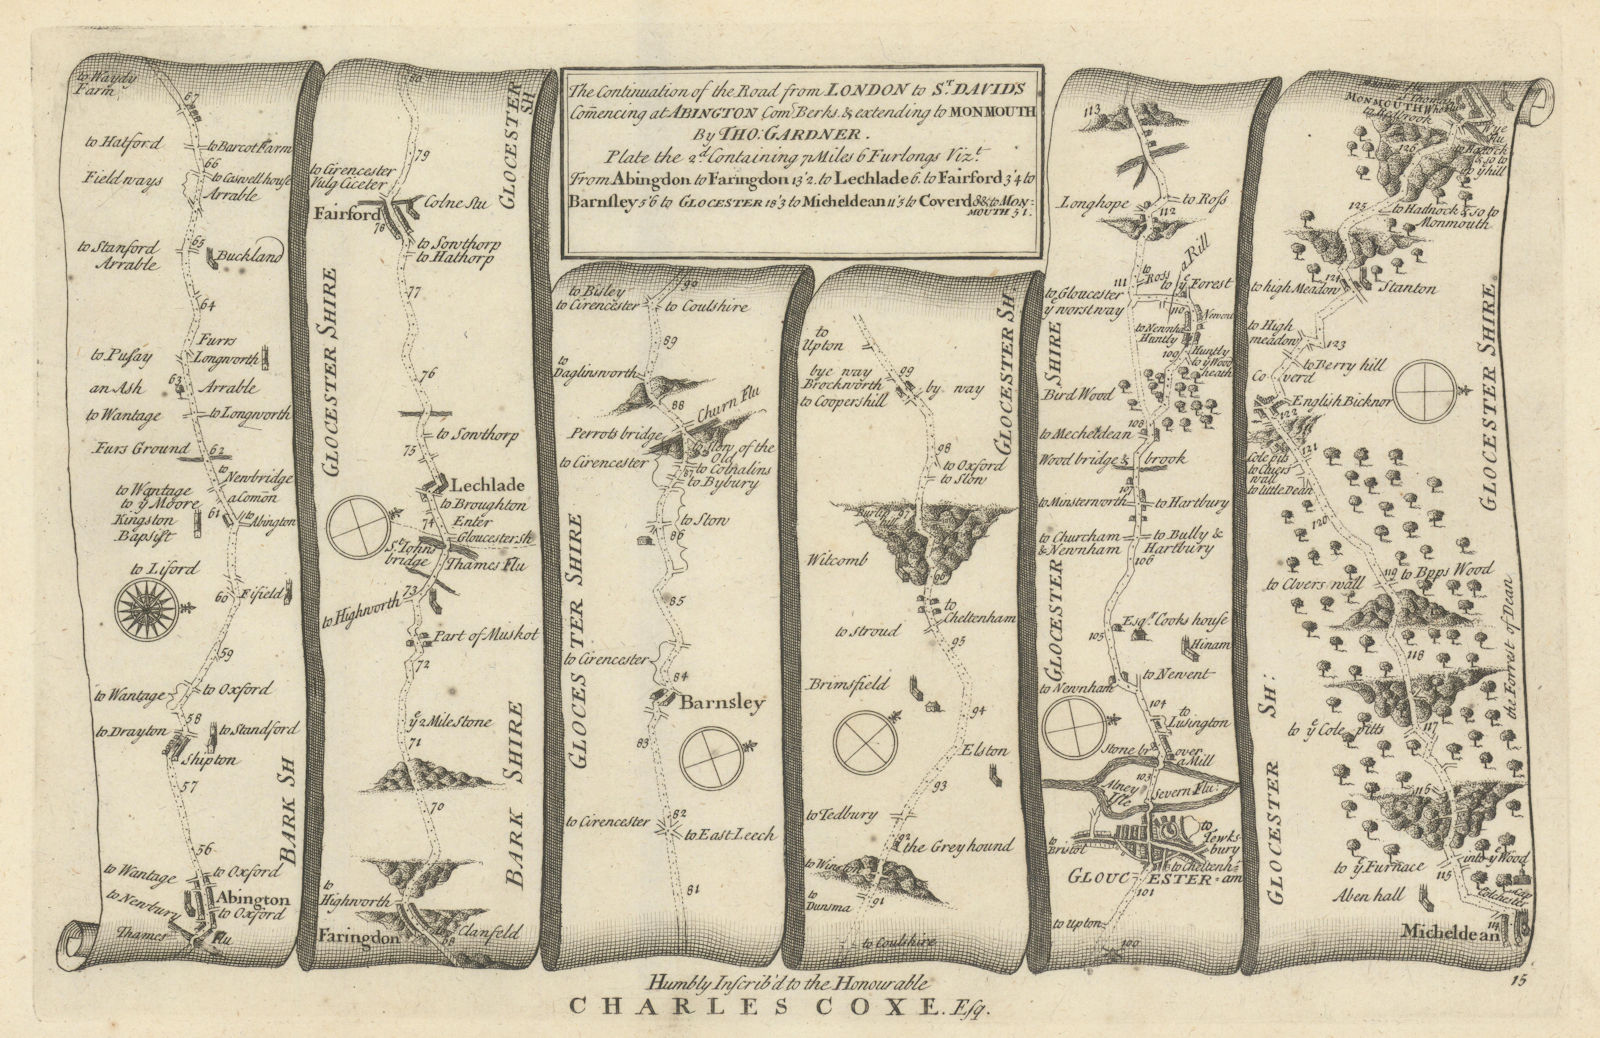 The Continuation of the Road from LONDON to ST. DAVIDS
Comencing at ABINGTON Com: Berks. & extending to MONMOUTH
By THO: GARDNER.
Plate the 2d. Containing 71 Miles 6 Furlongs Vizt.
From Abingdon to Faringdon 13'2. to Lechlade 6. to Fairford 3'4 to
Barnsley 5'6 to GLOCESTER 18'3 to Micheldean 11'5 to Coverd 8 & to MON:
MOUTH 5 1.
to Waydy
Farm
67
to Hatford
to Barcot Farm
66
Field ways
to Caswell house
Arrable
65
to Stanford
Arrable
Buckland
64
Furrs
to Pusay
Longworth
63
an Ash
Arrable
to Wantage
to Longworth
Furs Ground
62
to
Newbridge
a Comon
to Wantage
to ye Moore
Kingston
Bapsist
61
to
Abington
to Liford
60
Fifield
59
to Wantage
to Oxford
58
to Drayton
to Standford
Shipton
57
BARK SH
56
to Wantage
to Oxford
to Newbury
Abington
to Oxford
Thames
Flu
80
GLOCESTER
SH
79
to Cirencester
Vulg Ciceter
Fairford
Colne flu
78
to Sowthorp
to Hathorp
77
GLOCESTER SHIRE
76
to Sowthorp
75
Lechlade
to Broughton
74
Enter
Gloucester sh
St. Johns
bridge
Thames Flu
73
to Highworth
Part of Muskot
72
ye 2 Mile Stone
71
BARK SHIRE
70
to
Highworth
Faringdon
to Clanfeld
68
90
to Bisley
to Cirencester
to Coulshire
89
to
Daglinsworth
88
Churn Flu
Perrots bridge
to Stow of the
Old
to Cirencester
to Colnalins
87
to Bybury
to Stow
86
GLOCES TER SHIRE
85
to Cirencester
84
Barnsley
83
82
to Cirencester
to East Leech
81
to
Upton
GLOCESTER SH:
bye way
Brockworth
to Coopershill
99
by way
98
to Oxford
to Stow
97
Wilcomb
96
to
Cheltenham
to Stroud
95
Brimsfield
94
Elston
93
to Tedbury
92
the Greyhound
to
Dunsma
91
to Coulshire
113
Longhope
to Ross
112
a Rill
111
to
Ross
to ye Forest
to Gloucester
ye worst way
110
Newent
to Newnha
Huntly
109
Huntly
to ye Wood
heath
Bird Wood
GLOCESTER SHIRE
108
to Mecheldean
Wood bridge & brook
107
to Minsterworth
to Hartbury
to Churcham
& Newnham
to Bully &
Hartbury
106
105
Esqr. Cooks house
Hinam
to Newnham
to Newent
104
to
Lusington
Stone br:
over
a Mill
103
Alney
Isle
Severn Flu:
to
Bristol
to
Tewks-
bury
to Cheltenh:
GLOUC ESTER·am
101
to Upton
100
MONMOUTH
to Redbrook
Wye
flu
126
to Hadnock
& so to
ye hill
125
to Hadnock & so to
Monmouth
124
to high Meadow
Stanton
to High
meadow
123
to Berry hill
Coverd
English Bicknor
122
GLOCESTER SHIRE
121
Cole pits
to Clvers
wall
to little Dean
120
119
to Bpps Wood
to Clvers wall
the Forrest of Dean
118
GLOCESTER SH:
to ye Cole pitts
117
116
to ye Furnace
into ye Wood
115
Aben hall
Micheldean
114
Humbly Inscrib'd to the Honourable
CHARLES COXE. Esq.
15